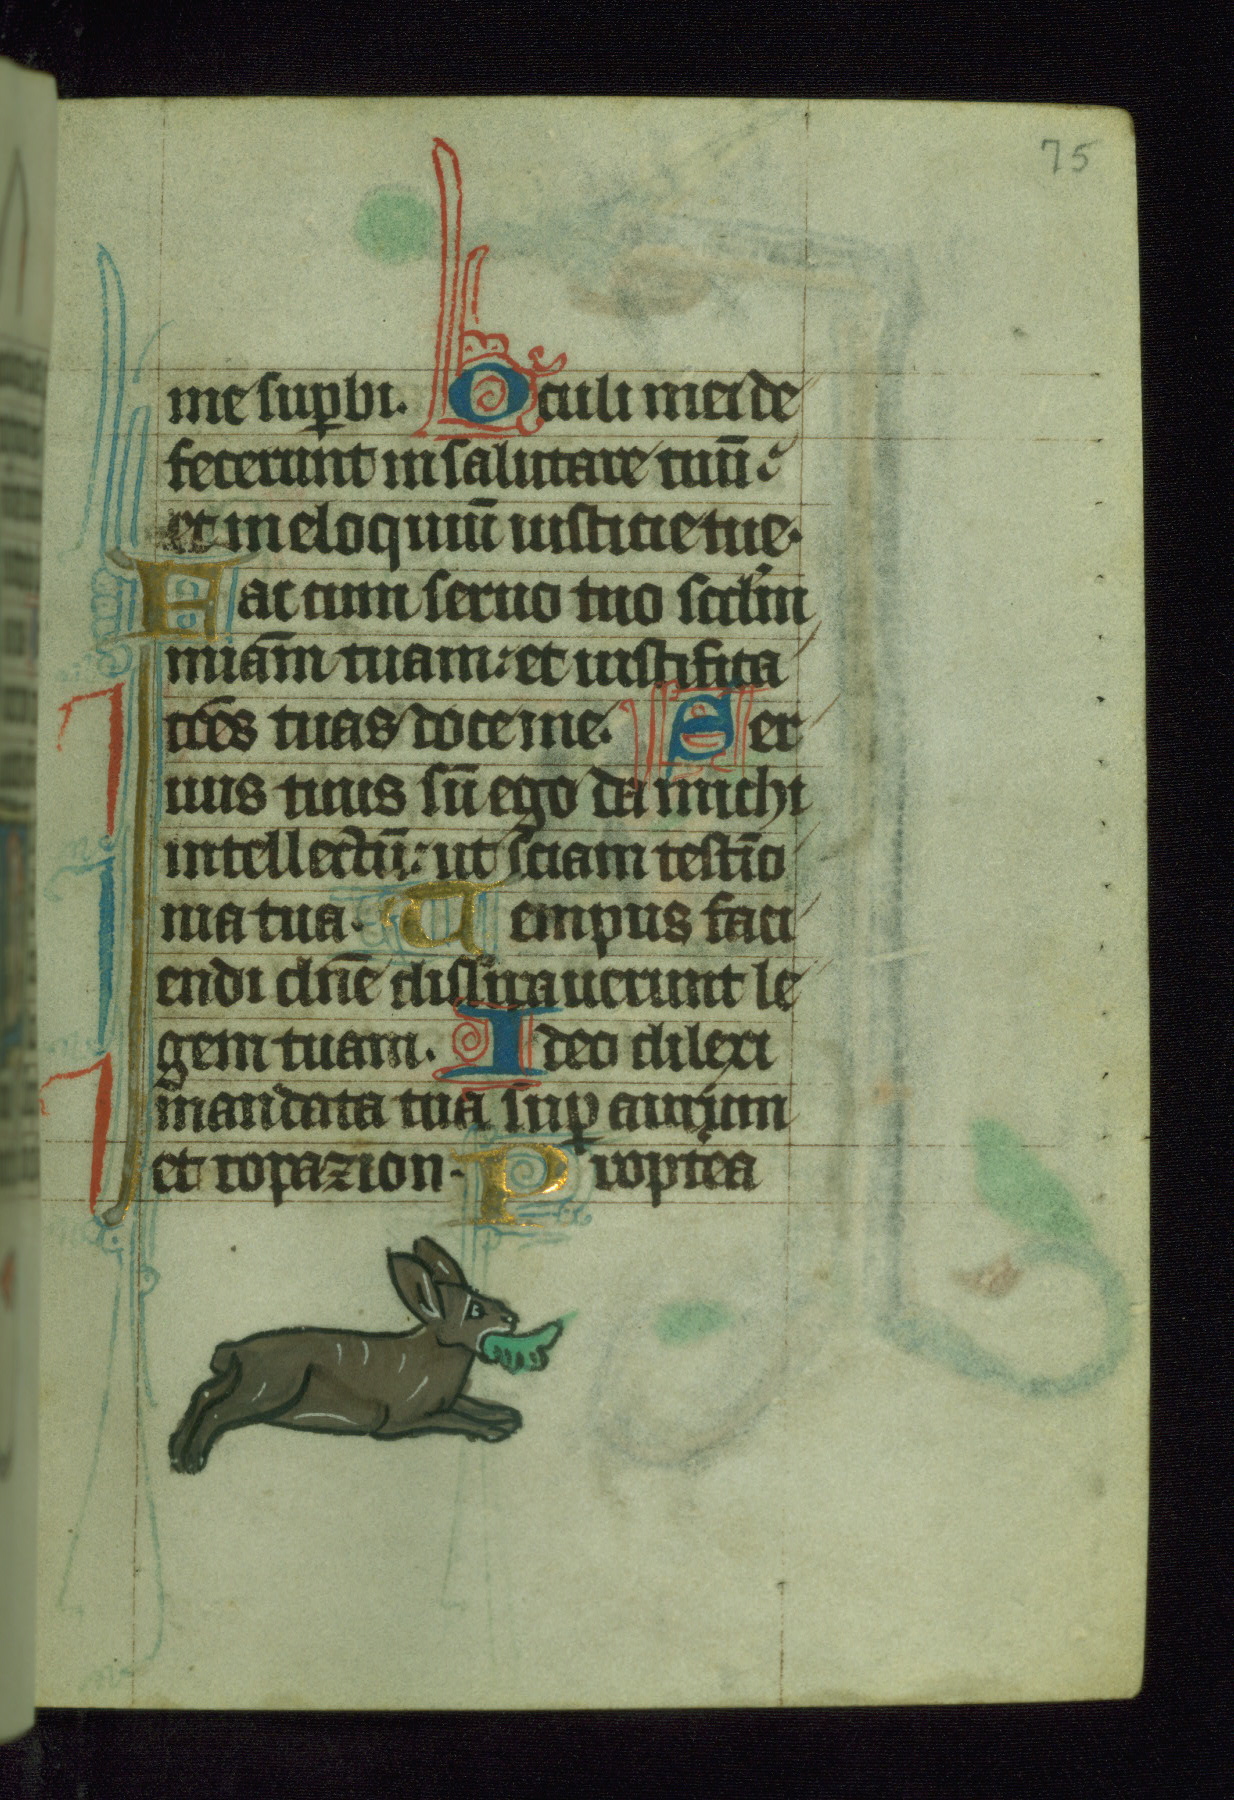 75
me sup̱bi. Oculi mei de
fecerunt in salutare tuū:
et in eloquiū iusticie tue.
Fac cum seruo tuo scd̓m
miām tuam: et iustifica
cōēs tuas doce me. Ser
uus tuus sū ego da michi
intellectū: ut sciam testīo
nia tua. Tempus faci
endi dn̄e dissipauerunt le
gem tuam. Ideo dilexi
mandata tua sup̱ aurum
et topazion. Propt̓ea